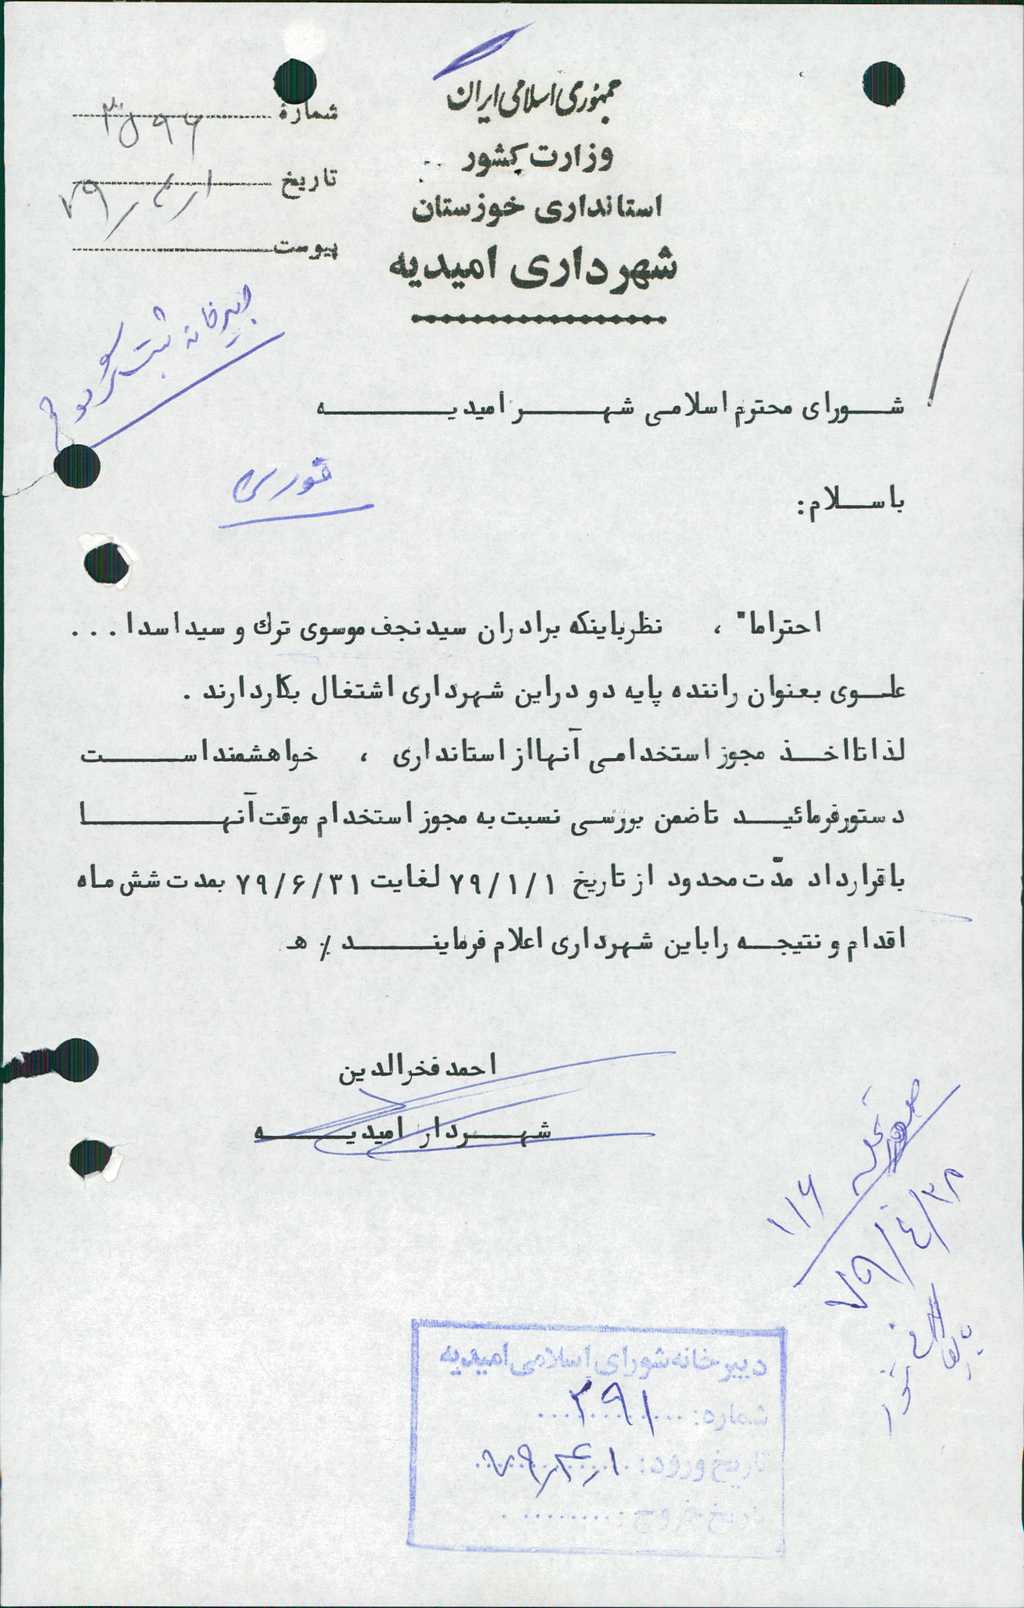 جمهوری اسلامی ایران
وزارت کشور
استانداری خوزستان
شهرداری امیدیه
شماره ۳۵۹۶
تاریخ ۷۹/۴/۱
پیوست
دبیرخانه ثبت شود
فوری
شورای محترم اسلامی شهر امیدیه
باسلام:
احتراما" ، نظرباینکه برادران سیدنجف موسوی ترك و سیداسدا ...
علوی بعنوان راننده پایه دو دراین شهرداری اشتغال بکاردارند .
لذاتااخذ مجوز استخدامی آنهااز استانداری ، خواهشمنداست
دستورفرمائید تاضمن بررسی نسبت به مجوز استخدام موقت آنها
باقرارداد مدّت محدود از تاریخ ۷۹/۱/۱ لغایت ۷۹/۶/۳۱ بمدت شش ماه
اقدام و نتیجه راباین شهرداری اعلام فرمایند ./ ه
احمدفخرالدین
شهردار امیدیه
صورتجلسه ۱۱۶
۷۹/۴/۲۸
دبیرخانه شورای اسلامی امیدیه
شماره: ۲۹۱
تاریخ ورود: ۷۹/۴/۱
تاریخ خروج: